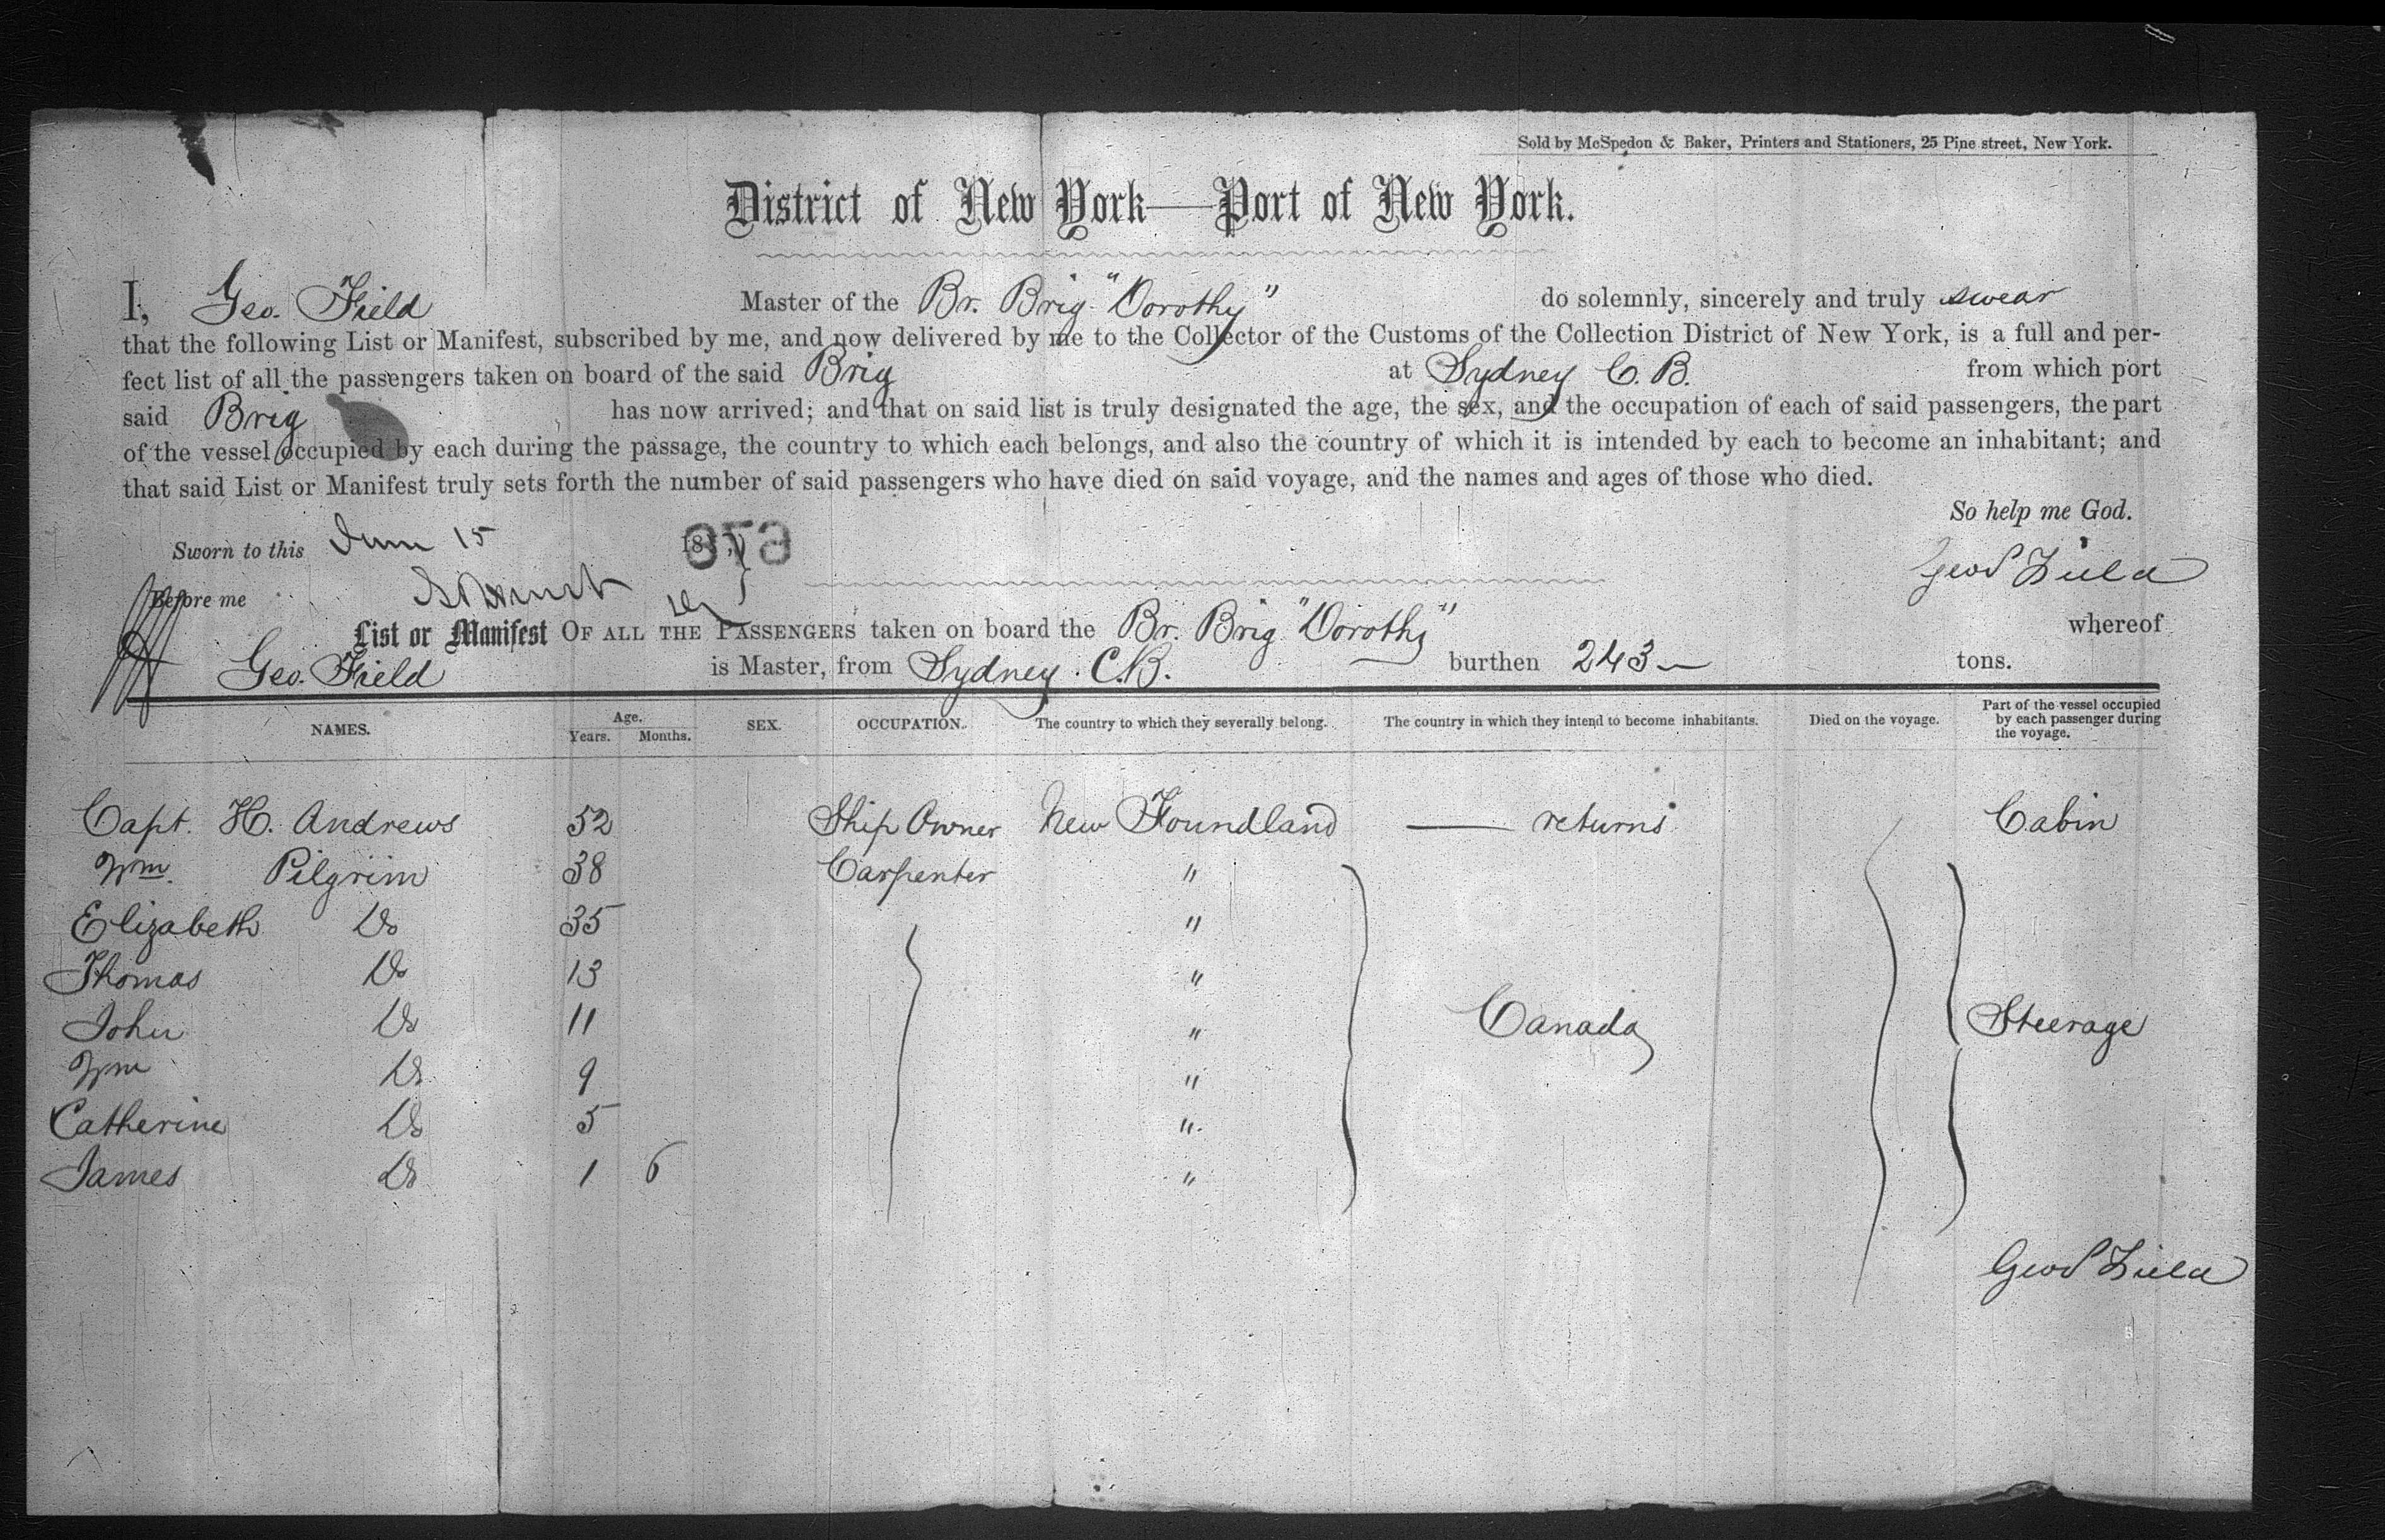 Sold by McSpedon & Baker, Printers and Stationers, 25 Pine street, New York.
District of New York—Port of New York.
I, Geo. Field Master of the Br. Brig "Dorothy" do solemnly, sincerely and truly swear
that the following List or Manifest, subscribed by me, and now delivered by me to the Collector of the Customs of the Collection District of New York, is a full and per-
fect list of all the passengers taken on board of the said Brig at Sydney C. B. from which port
said Brig has now arrived; and that on said list is truly designated the age, the sex, and the occupation of each of said passengers, the part
of the vessel occupied by each during the passage, the country to which each belongs, and also the country of which it is intended by each to become an inhabitant; and
that said List or Manifest truly sets forth the number of said passengers who have died on said voyage, and the names and ages of those who died.
So help me God.
Sworn to this June 15 18
Geo Field
Before me
List or Manifest OF ALL THE PASSENGERS taken on board the Br. Brig "Dorothy" whereof
Geo. Field is Master, from Sydney. C.B. burthen 243 tons.
NAMES. Age. Years. Months. SEX. OCCUPATION. The country to which they severally belong. The country in which they intend to become inhabitants. Died on the voyage. Part of the vessel occupied by each passenger during the voyage.
Capt. H. Andrews 52 Ship Owner New Foundland — returns Cabin
Wm. Pilgrim 38 Carpenter "
Elizabeth Do 35 "
Thomas Do 13 "
John Do 11 " Canada Steerage
Wm Do 9 "
Catherine Do 5 "
James Do 1 6 "
Geo Field